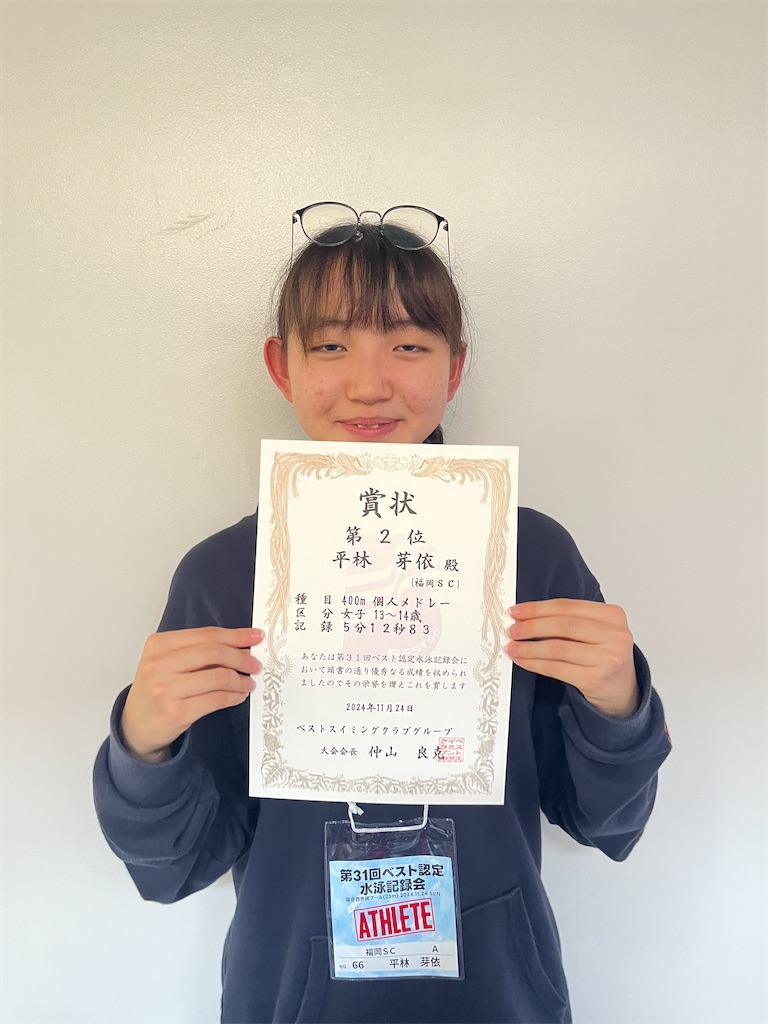 賞状
第 2 位
平林 芽依 殿
(福岡SC)
種 目 400m 個人メドレー
区 分 女子 13～14歳
記 録 5分12秒83
あなたは第31回ベスト認定水泳記録会に
おいて頭書の通り優秀なる成績を収められ
ましたのでその栄誉を讃えこれを賞します
2024年11月24日
ベストスイミングクラブグループ
大会会長 仲山 良克
第31回ベスト認定
水泳記録会
2024.11.24 SUN
ATHLETE
福岡SC A
No. 66 平林 芽依